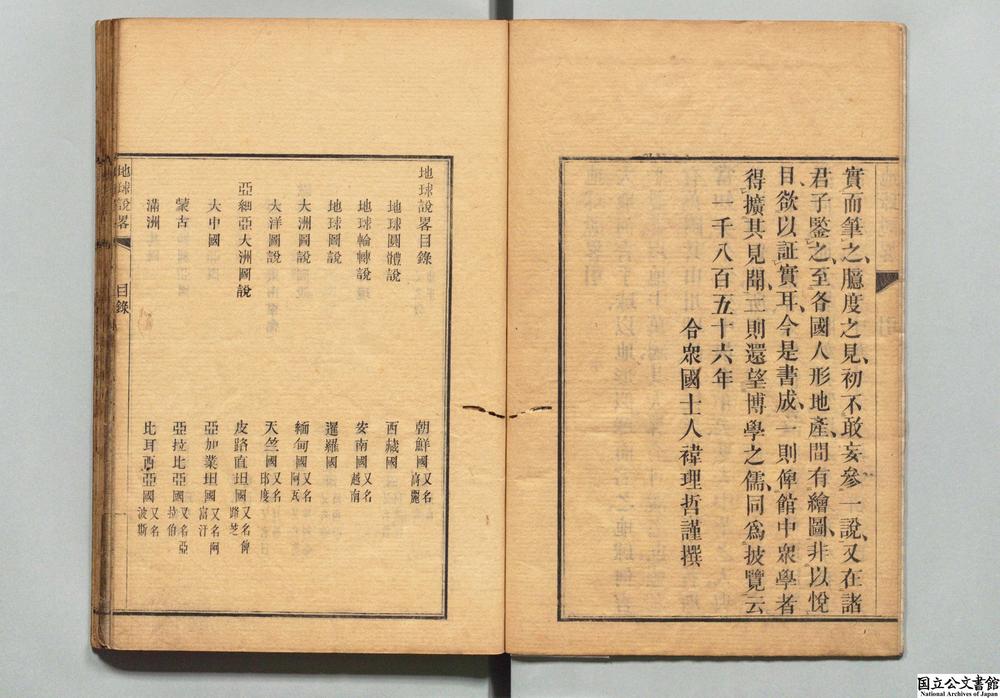 實而筆之、臆度之見、初不敢妄參一說、又在諸
君子鑒之、至各國人形地產、間有繪圖、非以悅
目、欲以証實耳、今是書成、一則俾館中衆學者
得擴其見聞、一則還望博學之儒、同爲披覽云
一千八百五十六年
合衆國士人褘理哲謹撰
地球說畧目錄
地球圓體說
地球輪轉說
地球圖說
大洲圖說
大洋圖說
亞細亞大洲圖說
大中國
蒙古
滿洲
朝鮮國又名高麗
西藏國
安南國又名越南
暹羅國
緬甸國又名阿瓦
天竺國又名印度
皮路直坦國又名俾路芝
亞加業坦國又名阿富汗
亞拉比亞國又名亞拉伯
比耳西亞國又名波斯
地球說畧
目錄
国立公文書館
National Archives of Japan